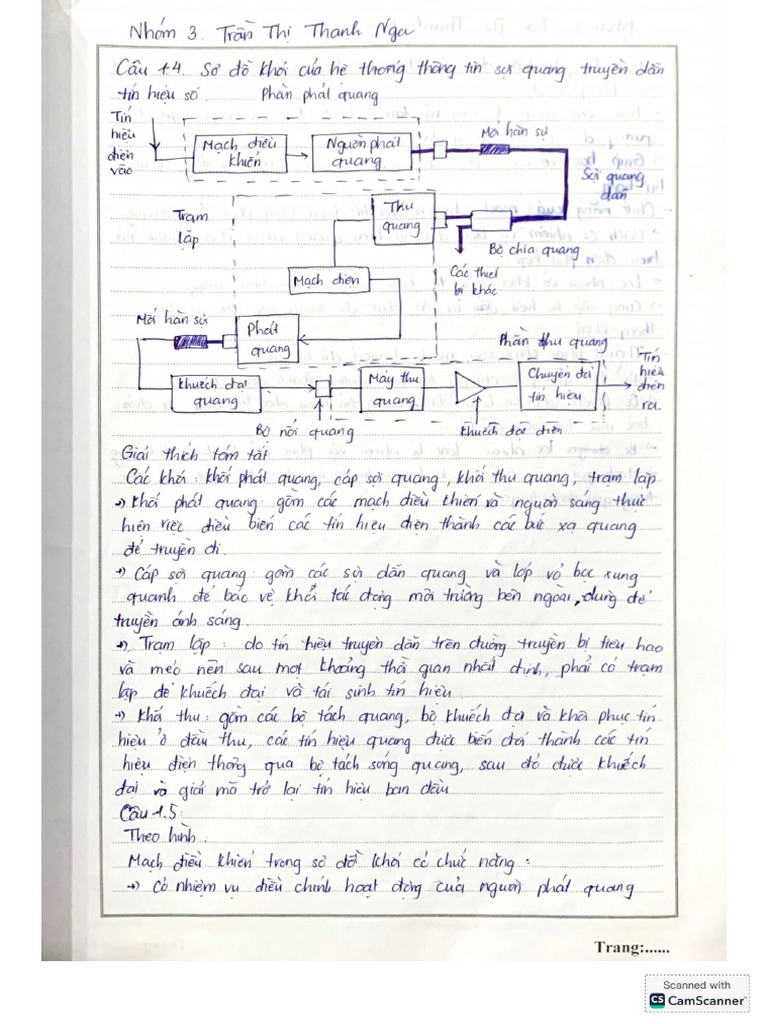 Nhóm 3. Trần Thị Thanh Nga
Câu 1.4. Sơ đồ khối của hệ thống thông tin sợi quang, truyền dẫn
tín hiệu số. Phần phát quang
Tín
hiệu
điện
vào
Mạch điều
khiển
Nguồn phát
quang
Mối hàn sợi
Sợi quang
dẫn
Trạm
lặp
Thu
quang
Bộ chia quang
Các thiết
bị khác
Mạch điện
Mối hàn sợi
Phát
quang
Phần thu quang
Khuếch đại
quang
Máy thu
quang
Chuyển đổi
tín hiệu
Tín
hiệu
điện
ra.
Bộ nối quang
Khuếch đại điện
Giải thích tóm tắt
Các khối: khối phát quang, cáp sợi quang, khối thu quang, trạm lặp
→ Khối phát quang: gồm các mạch điều khiển và nguồn sáng thực
hiện việc điều biến các tín hiệu điện thành các bức xạ quang
để truyền đi.
→ Cáp sợi quang: gồm các sợi dẫn quang và lớp vỏ bọc xung
quanh để bảo vệ khỏi tác động môi trường bên ngoài, dùng để
truyền ánh sáng.
→ Trạm lặp: do tín hiệu truyền dẫn trên đường truyền bị tiêu hao
và méo nên sau một khoảng thời gian nhất định, phải có trạm
lặp để khuếch đại và tái sinh tín hiệu.
→ Khối thu: gồm các bộ tách quang, bộ khuếch đại và khôi phục tín
hiệu ở đầu thu, các tín hiệu quang được biến đổi thành các tín
hiệu điện thông qua bộ tách sóng quang, sau đó được khuếch
đại và giải mã trở lại tín hiệu ban đầu
Câu 1.5:
Theo hình:
Mạch điều khiển trong sơ đồ khối có chức năng:
→ Có nhiệm vụ điều chỉnh hoạt động của nguồn phát quang
Trang:......
Scanned with
CS CamScanner